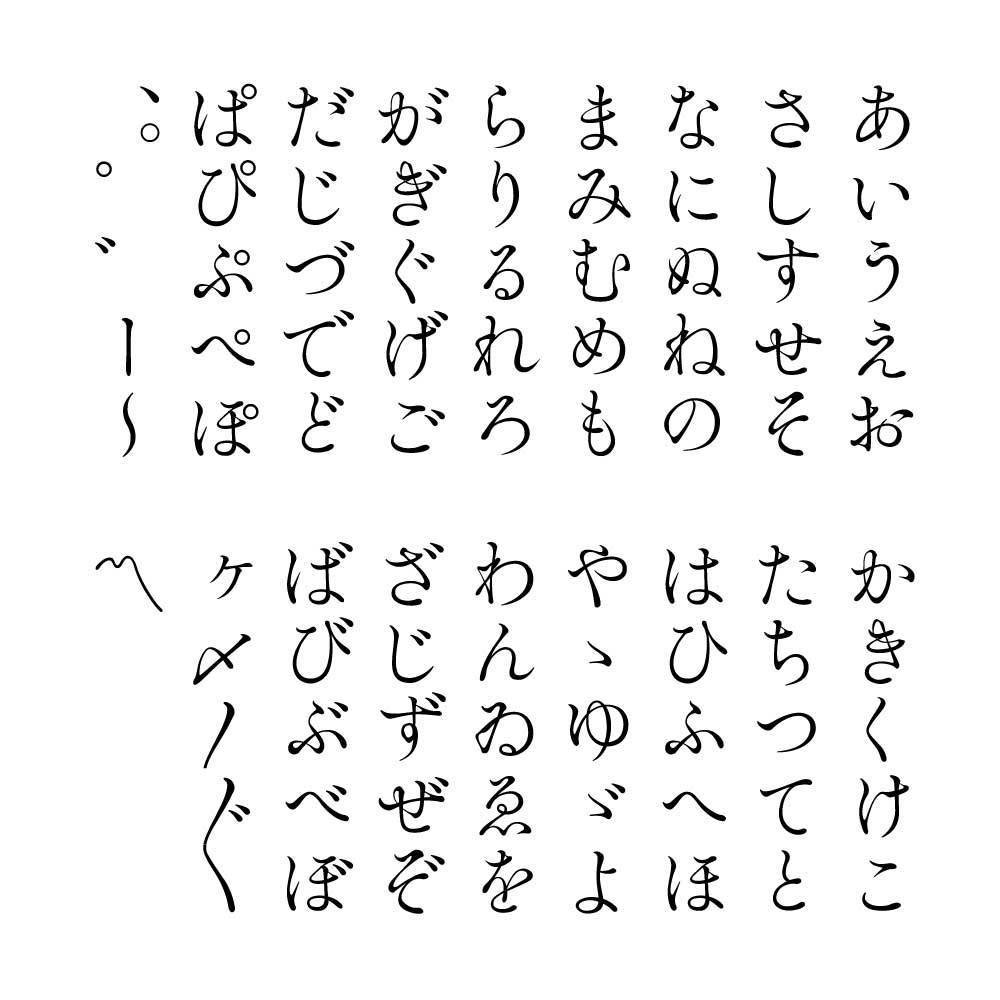 あいうえお
さしすせそ
なにぬねの
まみむめも
らりるれろ
がぎぐげご
だじづでど
ぱぴぷぺぽ
、。゜゛ー〜
かきくけこ
たちつてと
はひふへほ
やゝゆゞよ
わんゐゑを
ざじずぜぞ
ばびぶべぼ
ヶ〆〳〲
〽